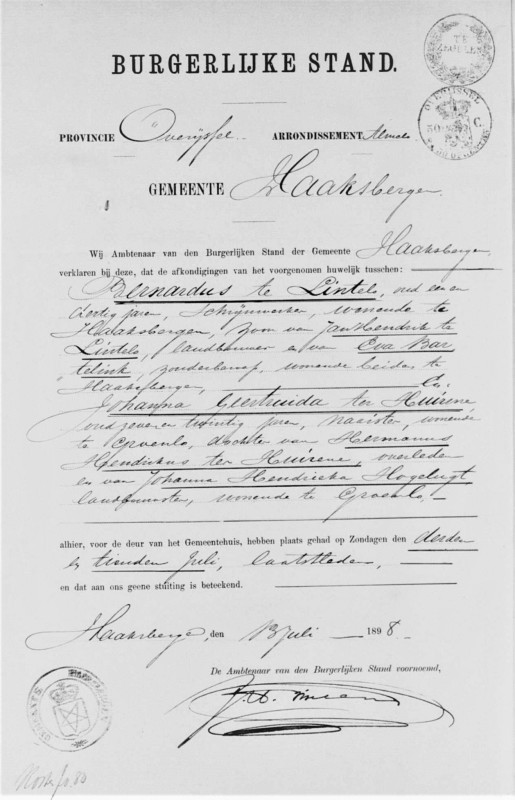 TE
ZWOLLE
OVERIJSSEL
50 C.
BURGERLIJKE STAND.
PROVINCIE Overijssel. ARRONDISSEMENT Almelo
GEMEENTE Haaksbergen.
Wij Ambtenaar van den Burgerlijken Stand der Gemeente Haaksbergen
verklaren bij deze, dat de afkondigingen van het voorgenomen huwelijk tusschen:
Bernardus te Lintelo, oud een en
dertig jaren, schrijnwerker, wonende te
Haaksbergen, zoon van Jan Hendrik te
Lintelo, landbouwer en van Eva Bar
telink, zonder beroep, wonende beiden te
Haaksbergen, En
Johanna Geertruida ter Huirne
oud zeven en twintig jaren, naaister, wonende
te Groenlo, dochter van Hermannus
Hendrikus ter Huirne, overleden
en van Johanna Hendrieka Hogelugt
wonende te Groenlo,
alhier, voor de deur van het Gemeentehuis, hebben plaats gehad op Zondagen den derden
en tienden Juli, laatstleden,
en dat aan ons geene stuiting is beteekend.
Haaksberge, den 13 Juli 1898.
De Ambtenaar van den Burgerlijken Stand voornoemd,